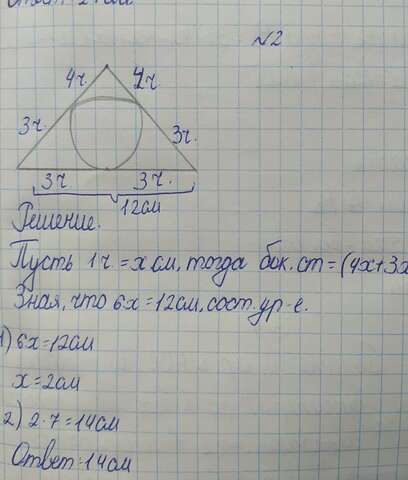 №2
4ч. 4ч
3ч. 3ч.
3ч 3ч.
12см
Решение.
Пусть 1ч.=х см, тогда бок.ст=(4х+3х
Зная, что 6х=12см, сост. ур-е.
1) 6х=12см
х=2см
2) 2·7=14см
Ответ: 14см